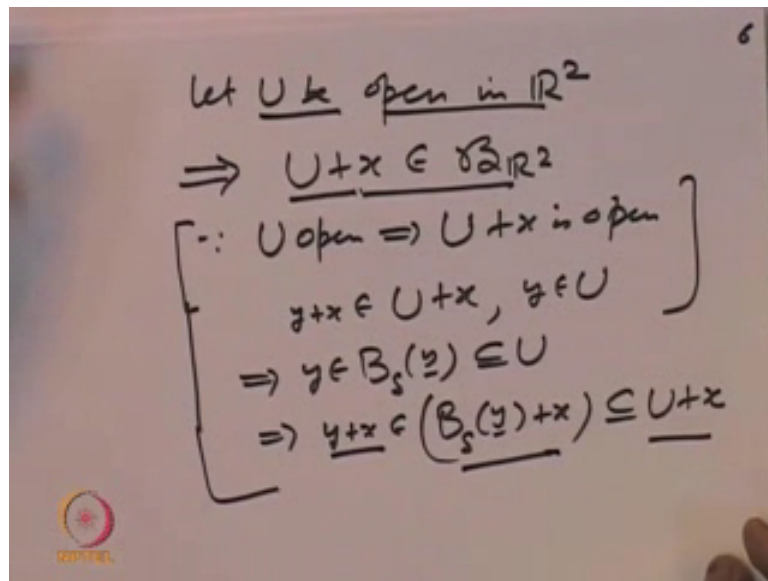 6
Let U be open in ℝ²
⟹ U+x ∈ 𝓑ℝ²
∵ U open ⟹ U+x is open
y+x ∈ U+x, y∈U
⟹ y∈ B_δ(y) ⊆ U
⟹ y+x ∈ (B_δ(y)+x) ⊆ U+x
NPTEL